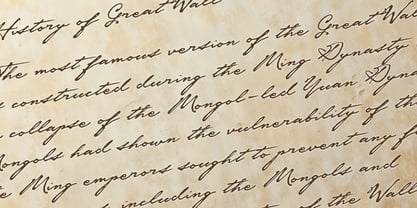 History of Great Wall
The most famous version of the Great Wall
constructed during the Ming Dynasty
collapse of the Mongol-led Yuan Dyna
Mongols had shown the vulnerability of th
Ming emperors sought to prevent any f
including the Mongols and
of the Wall